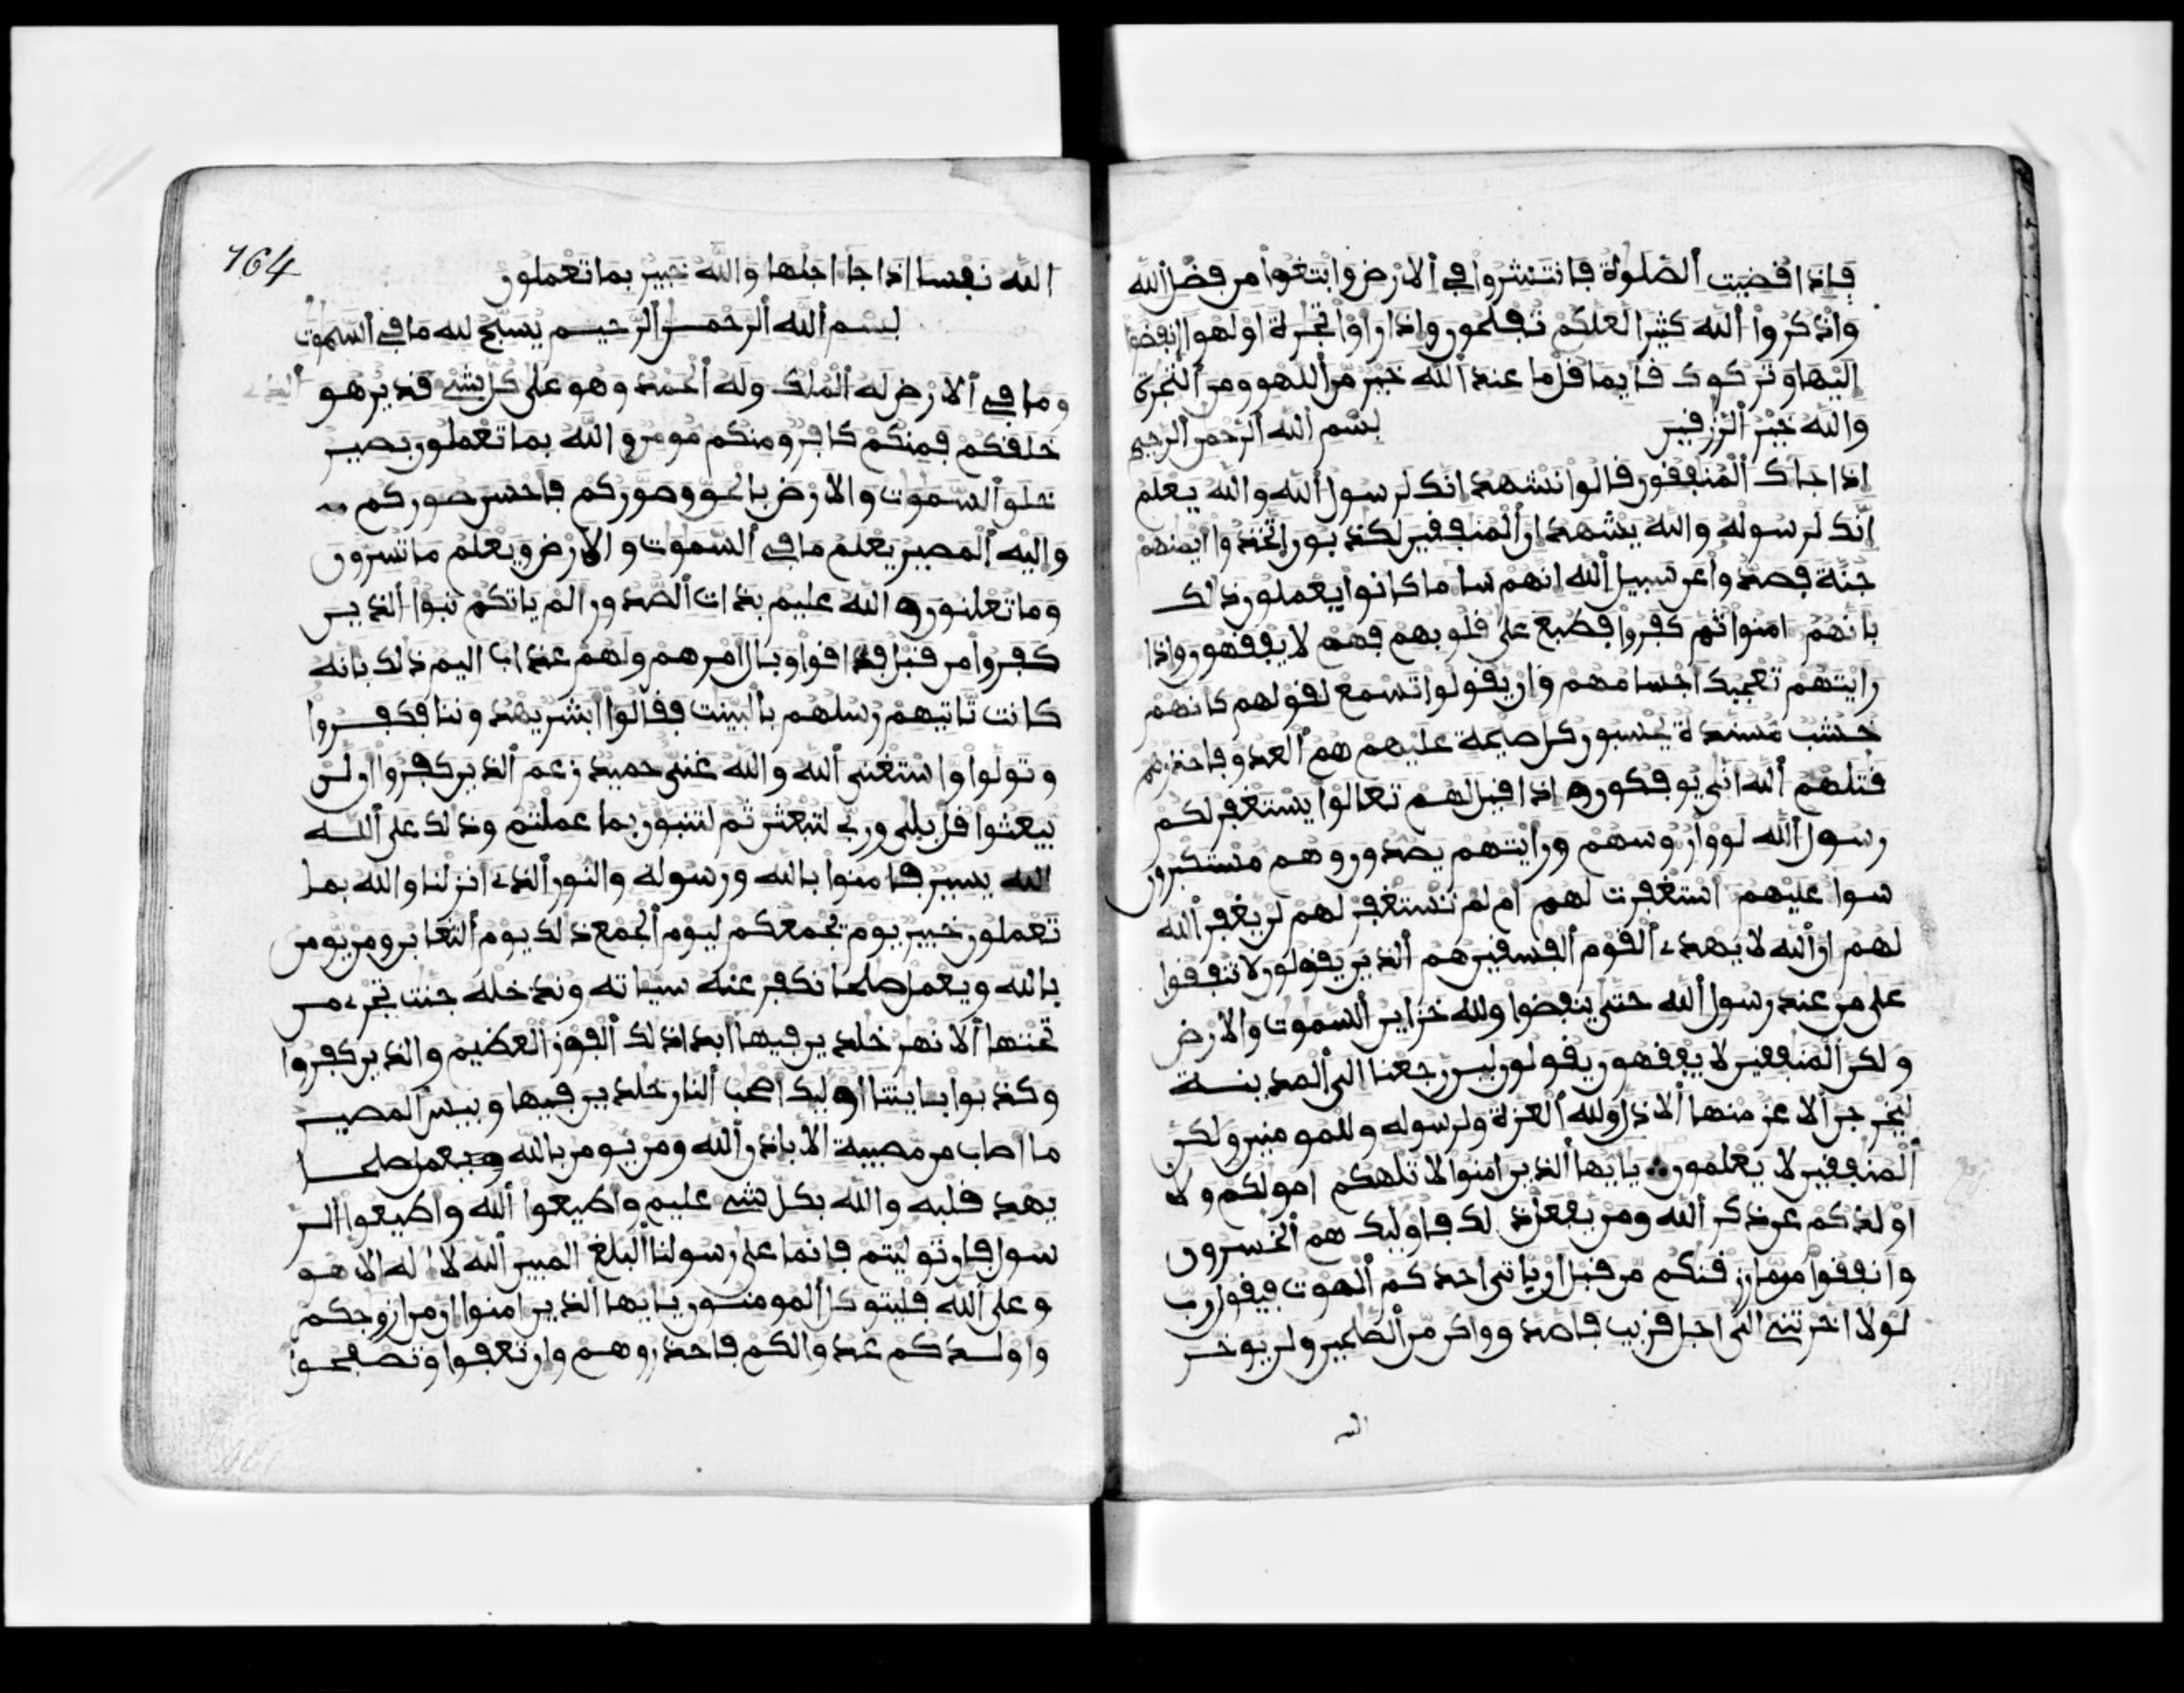 فإذا قضيت الصلوة فانتشروا في الارض وابتغوا من فضل الله
واذكروا الله كثيرا لعلكم تفلحون واذا راوا تجرة او لهوا انفضوا
اليها وتركوك قايما قل ما عند الله خير من اللهو ومن التجرة
والله خير الرزقين بسم الله الرحمن الرحيم
اذا جاك المنفقون قالوا نشهد انك لرسول الله والله يعلم
انك لرسوله والله يشهد ان المنفقين لكذبون اتخذوا ايمنهم
جنة فصدوا عن سبيل الله انهم سا ما كانوا يعملون ذلك
بانهم امنوا ثم كفروا فطبع على قلوبهم فهم لا يفقهون واذا
رايتهم تعجبك اجسامهم وان يقولوا تسمع لقولهم كانهم
خشب مسندة يحسبون كل صيحة عليهم هم العدو فاحذرهم
قتلهم الله انى يوفكون واذا قيل لهم تعالوا يستغفر لكم
رسول الله لووا روسهم ورايتهم يصدون وهم مستكبرون
سوا عليهم استغفرت لهم ام لم تستغفر لهم لن يغفر الله
لهم ان الله لا يهدي القوم الفسقين هم الذين يقولون لا تنفقوا
على من عند رسول الله حتى ينفضوا ولله خزاين السموت والارض
ولكن المنفقين لا يفقهون يقولون لين رجعنا الى المدينة
ليخرجن الاعز منها الاذل ولله العزة ولرسوله وللمومنين ولكن
المنفقين لا يعلمون يايها الذين امنوا لا تلهكم امولكم ولا
اولدكم عن ذكر الله ومن يفعل ذلك فاوليك هم الخسرون
وانفقوا مما رزقنكم من قبل ان ياتي احدكم الموت فيقول رب
لولا اخرتني الى اجل قريب فاصدق واكن من الصلحين ولن يوخر
الله
164
الله نفسا اذا جا اجلها والله خبير بما تعملون
بسم الله الرحمن الرحيم يسبح لله ما في السموت
وما في الارض له الملك وله الحمد وهو على كل شي قدير هو الذي
خلقكم فمنكم كافر ومنكم مومن والله بما تعملون بصير
خلق السموت والارض بالحق وصوركم فاحسن صوركم
واليه المصير يعلم ما في السموت والارض ويعلم ما تسرون
وما تعلنون والله عليم بذات الصدور الم ياتكم نبوا الذين
كفروا من قبل فذاقوا وبال امرهم ولهم عذاب اليم ذلك بانه
كانت تاتيهم رسلهم بالبينت فقالوا ابشر يهدوننا فكفروا
وتولوا واستغنى الله والله غني حميد زعم الذين كفروا ان لن
يبعثوا قل بلى وربي لتبعثن ثم لتنبون بما عملتم وذلك على الله
الله يسير فامنوا بالله ورسوله والنور الذي انزلنا والله بما
تعملون خبير يوم يجمعكم ليوم الجمع ذلك يوم التغابن ومن يومن
بالله ويعمل صلحا نكفر عنه سياته وندخله جنت تجري من
تحتها الانهر خلدين فيها ابدا ذلك الفوز العظيم والذين كفروا
وكذبوا بايتنا اوليك اصحب النار خلدين فيها وبيس المصير
ما اصاب من مصيبة الا باذن الله ومن يومن بالله ويعمل صلحا
يهد قلبه والله بكل شي عليم واطيعوا الله واطيعوا الر
سول فان توليتم فانما على رسولنا البلغ المبين الله لا اله الا هو
وعلى الله فليتوكل المومنون يايها الذين امنوا ان من ازوجكم
واولدكم عدوا لكم فاحذروهم وان تعفوا وتصفحوا